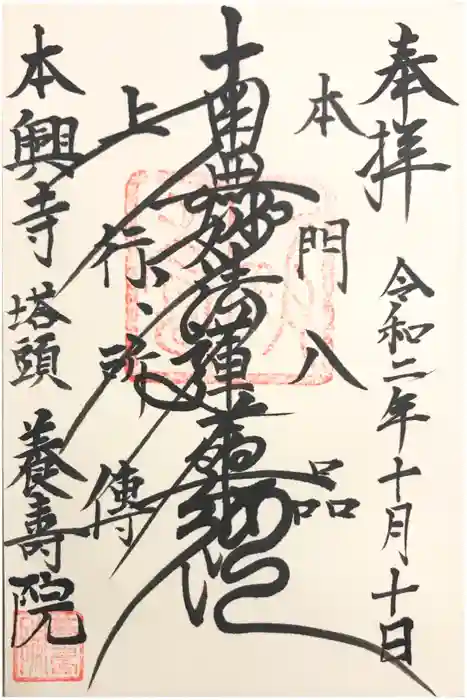 奉拝
令和二年十月十日
本門八品
南無妙法蓮華経
上行所傳
本興寺 塔頭 養寿院